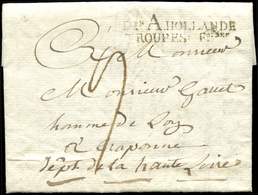 DON A. HOLLANDE
TROUPES FRSES
A Monsieur
Monsieur Gallet
homme de Loy
à Craponne
dépt de la haute Loire